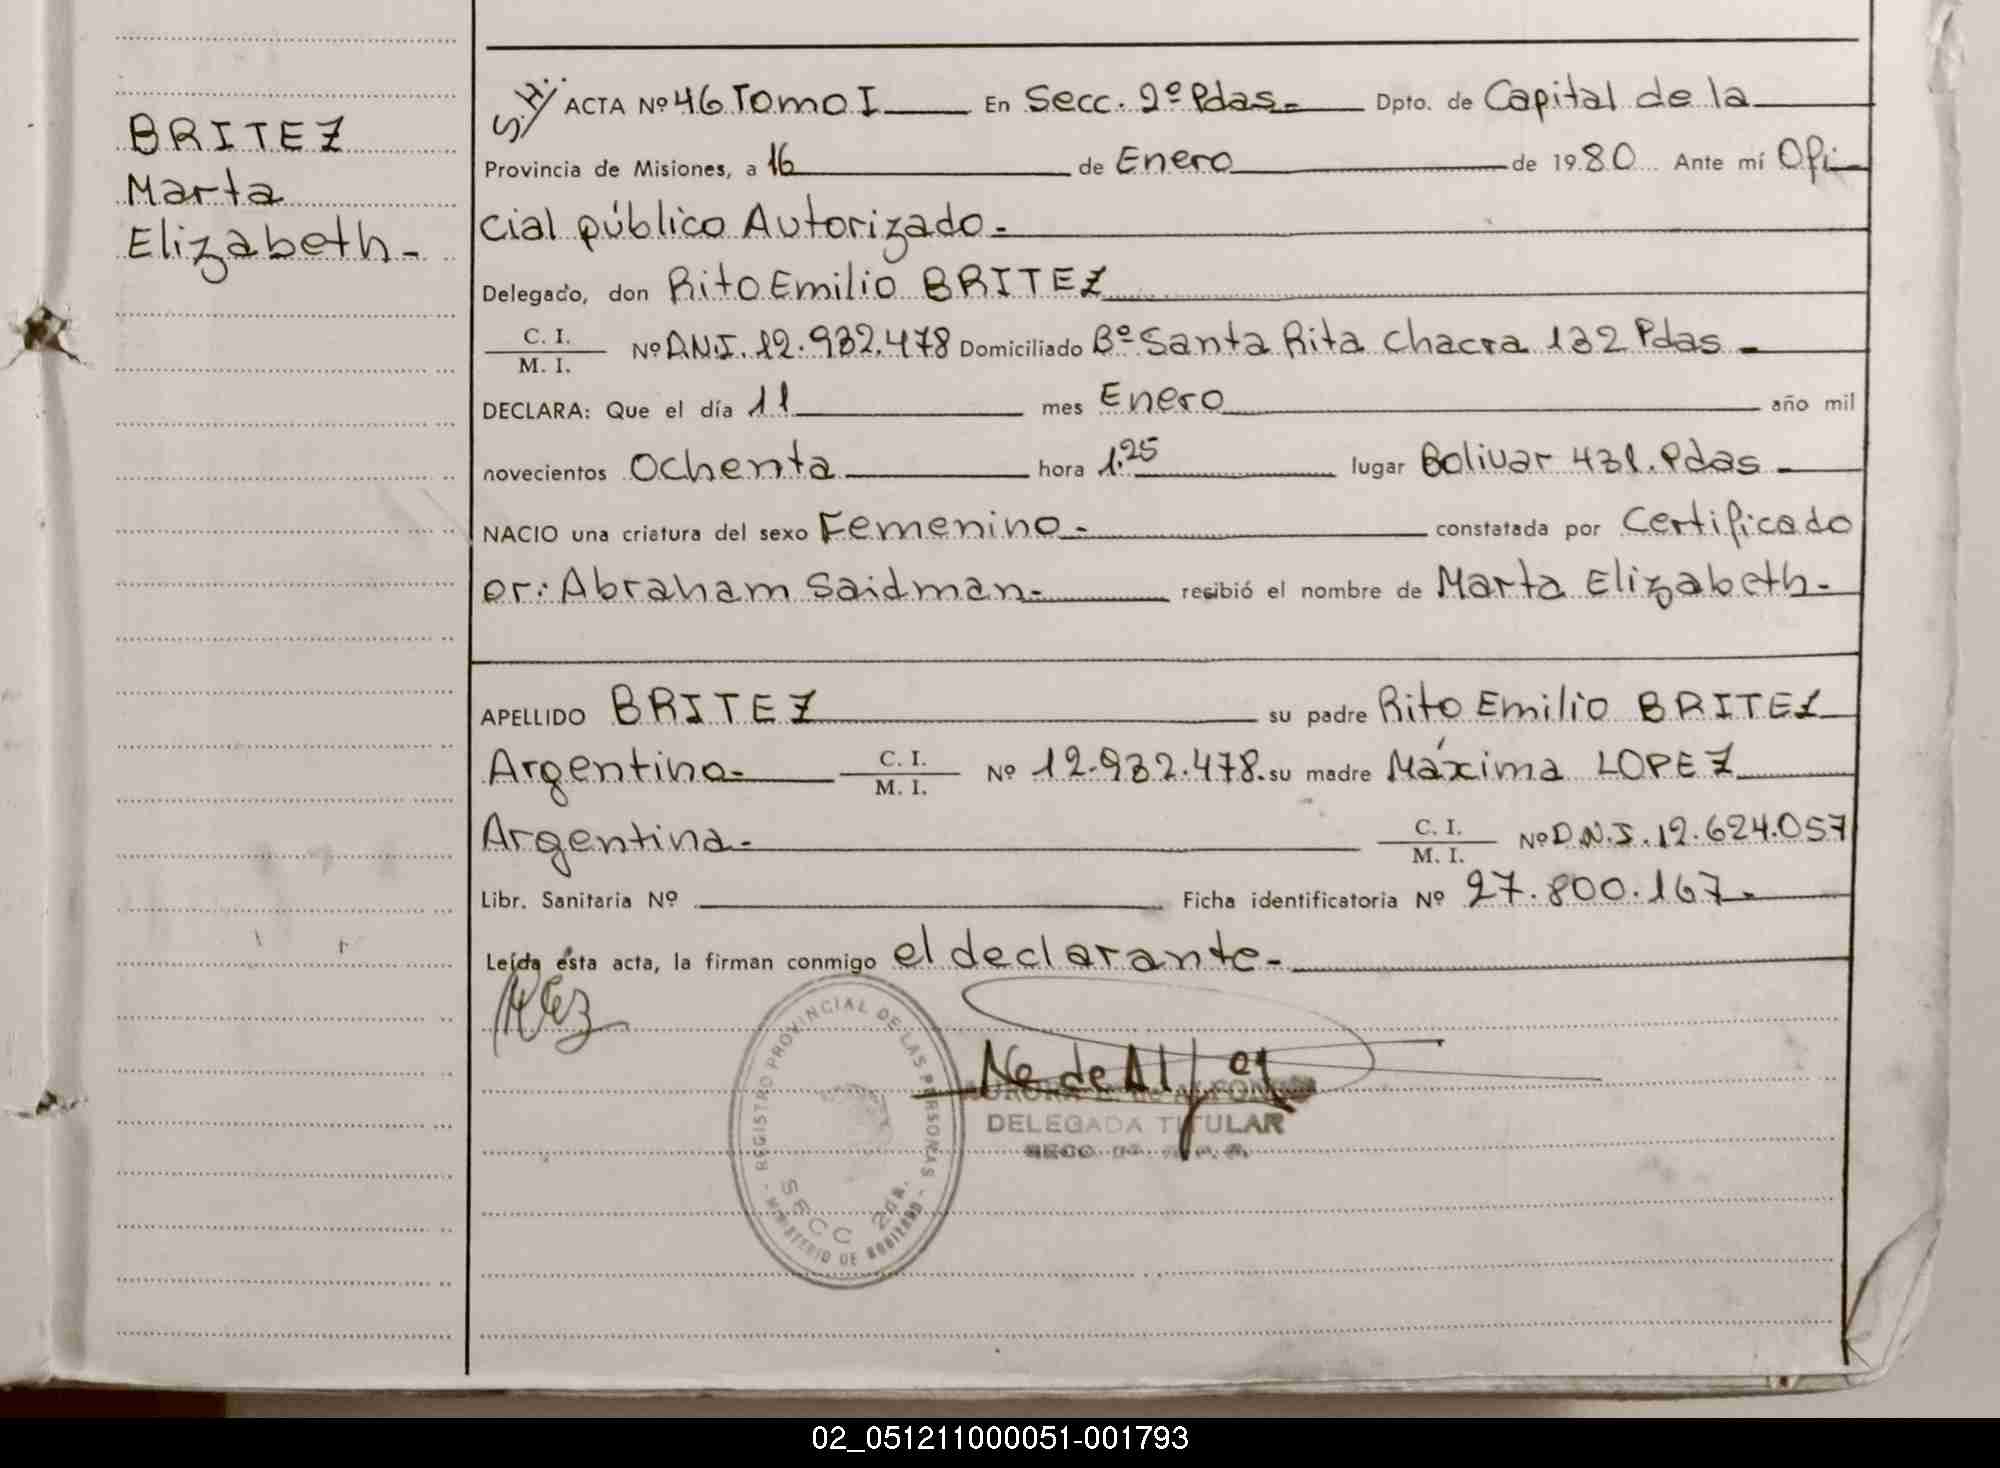 BRITEZ
Marta
Elizabeth-
S.H.
ACTA Nº 46 Tomo I En Secc. 2º Pdas- Dpto. de Capital de la
Provincia de Misiones, a 16 de Enero de 1980 Ante mí Ofi-
cial público Autorizado-
Delegado, don Rito Emilio BRITEZ
C. I.
M. I. Nº D.N.I. 12.932.478 Domiciliado Bº Santa Rita chacra 132 Pdas-
DECLARA: Que el día 11 mes Enero año mil
novecientos Ochenta hora 1.25 lugar Bolivar 431. Pdas-
NACIO una criatura del sexo Femenino- constatada por Certificado
Dr: Abraham Saidman- recibió el nombre de Marta Elizabeth-
APELLIDO BRITEZ su padre Rito Emilio BRITEZ
Argentino- C. I.
M. I. Nº 12.932.478. su madre Máxima LOPEZ
Argentina- C. I.
M. I. Nº D.N.I. 12.624.057
Libr. Sanitaria Nº Ficha identificatoria Nº 27.800.167-
Leída ésta acta, la firman conmigo el declarante-
REGISTRO PROVINCIAL DE LAS PERSONAS
SECC 2da.
- MINISTERIO DE GOBIERNO -
DELEGADA TITULAR
02_051211000051-001793